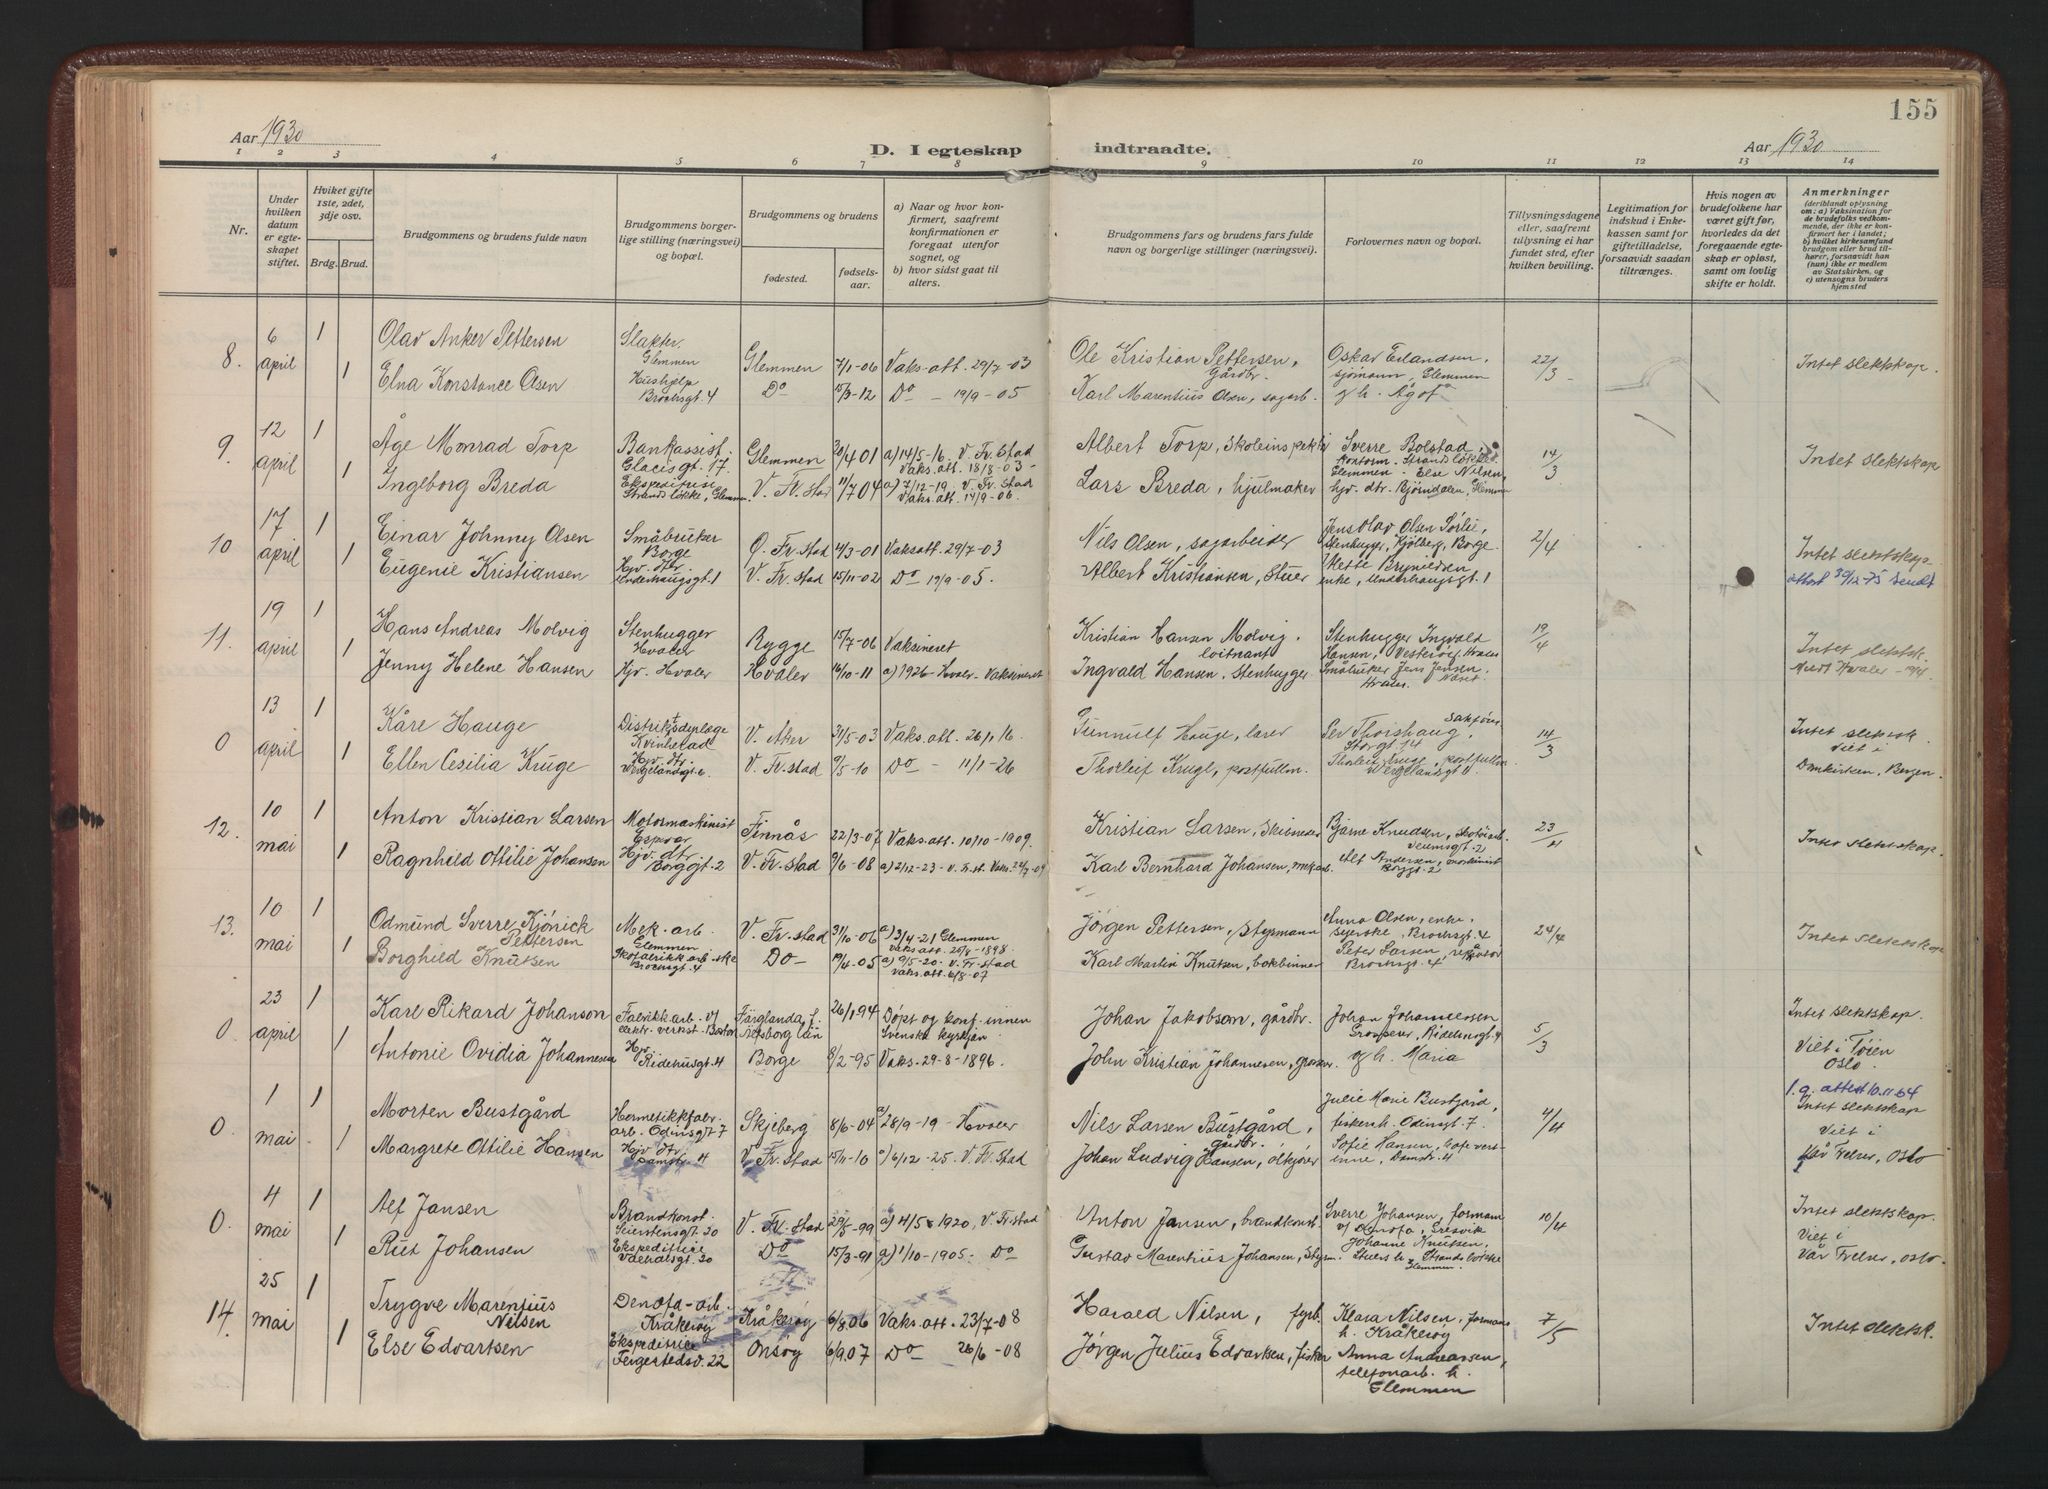 155
Aar 1930
D. I egteskap indtraadte.
Aar 1930
1 2 3 4 5 6 7 8 9 10 11 12 13 14
Nr.
Under hvilken datum er egteskapet stiftet.
Hviket gifte 1ste, 2det, 3dje osv.
Brdg. Brud.
Brudgommens og brudens fulde navn
Brudgommens borgerlige stilling (næringsvei) og bopæl.
Brudgommens og brudens
fødested.
fødselsaar.
a) Naar og hvor konfirmert, saafremt konfirmationen er foregaat utenfor sognet, og
b) hvor sidst gaat til alters.
Brudgommens fars og brudens fars fulde navn og borgerlige stillinger (næringsvei).
Forlovernes navn og bopæl.
Tillysningsdagene eller, saafremt tillysning ei har fundet sted, efter hvilken bevilling.
Legitimation for indskud i Enkekassen samt for giftetilladelse, forsaavidt saadan tiltrænges.
Hvis nogen av brudefolkene har været gift før, hvorledes da det foregaaende egteskap er opløst, samt om lovlig skifte er holdt.
Anmerkninger (deriblandt oplysning om: a) Vaksination for de brudefolks vedkommende, der ikke er konfirmert her i landet; b) hvilket kirkesamfund brudgom eller brud tilhører, forsaavidt han (hun) ikke er medlem av Statskirken, og c) utensogns bruders hjemsted
8. 6 april 1 Olav Anker Pettersen Slakter. Glemmen Glemmen 7/1-06 Vaks. att. 29/7-03 Ole Kristian Pettersen, Gårdbr. Oskar Erlandsen, sjømann, Glemmen 22/3 Intet slektskap.
1 Elna Konstance Olsen Hushjelp Brochsgt. 4 Do 15/3-12 Do - 19/9-05 Karl Marentius Olsen, sagarb. g h. Ågot
9. 12 april 1 Åge Monrad Torp Bankassist. Glacisgt. 17. Glemmen 20/4 01 a) 14/5-16. V. Fr.stad Vaks. att. 18/8-03- Albert Torp, Skoleinspektør Sverre Bolstad, kontorm. Strandsløkke, Glemmen 14/3 Intet slektskap
1 Ingeborg Breda Ekspeditrise Strandsløkke, Glemmen V. Fr. stad 11/7 04 a) 7/12-19. V. Fr. stad Vaks. att. 14/9-06. Lars Breda, hjulmaker Else Nilsen, hjv. dtr. Bjørndalen, Glemmen
10 17 april 1 Einar Johnny Olsen Småbruker Borge Ø. Fr. stad 4/3-01 Vaks att. 29/7-03 Nils Olsen, sagarbeider Jens Olav Olsen Sørlie, Stenhugger, Kjølberg, Borge 2/4 Intet slektskap
1 Eugenie Kristiansen Hjv. dtr. Underhaugsgt. 1 V. Fr. stad 15/11-02 Do 19/9-05. Albert Kristiansen, Stuer Mette Brynildsen enke, Underhaugsgt. 1 attest 30/12-75 sendt
11. 19 april 1 Hans Andreas Molvig Stenhugger Hvaler Rygge 15/7-06 Vaksineret Kristian Hansen Molvig, loitnant Stenhugger Ingvald Hansen, Vesterøy, Hvaler 19/4 Intet slektsk.
1 Jenny Helene Hansen Hjv. Hvaler Hvaler 14/10-11 a) 1926-Hvaler-Vaksineret Ingvald Hansen, Stenhugger Småbruker Jens Jensen, Hvaler. Viet Hvaler 19/4
0 13 april 1 Kåre Hauge Distriktsdyrlæge Kvinherad V. Aker 31/5-03 Vaks. att. 26/1 16. Gunnulf Hauge, lærer Per Thorshaug, Sakfører Storgt. 14 14/3 Intet slektsk.
1 Ellen Cesilia Kruge Hjv. dtr. Wergelandsgt. 6 V. Fr. stad 9/5-10 Do - 11/1-26 Thorleif Kruge, postfullm. Thorleif Kruge, postfullm. Wergelandsgt. 6 Viet i Domkirken, Bergen.
12. 10 mai 1 Anton Kristian Larsen Motormaskinist Espevær Finnås 22/3-07 Vaks. att. 10/10-1909. Kristian Larsen, Skibsreder Bjarne Knudsen, 23/4 Intet slektskap.
1 Ragnhild Ottilie Johansen Hjv. dtr. Borggt. 2 V. Fr. stad 9/6-08 a) 2/12-23-V. Fr. st. Vaks. 24/7-09 Karl Bernhard Johansen, mek arb. Alf Andersen, maskinist Borggt. 2
13. 10 mai 1 Odmund Sverre Kjønick Pettersen Mek. arb. Glemmen V. Fr. stad 31/10-06 a) 3/4-21 Glemmen Vaks. att. 1898. Jørgen Pettersen, Styrmann Anna Olsen, enke, syerske, Brochsgt. 4 24/4 Intet slektskap
1 Borghild Knutsen Skofabrikkarb.ske Brochsgt. 4 Do 19/4-05 a) 9/5-20. V. Fr. stad Vaks. att. 6/8-07 Karl Martin Knutsen, bokbinner Peter Larsen, Brochsgt. 4
0. 23 april 1 Karl Rikard Johanson Fabrikkarb. v/ elektr. verkst. Boston Färglanda f. Älfsborg län 26/1 94 Døpt og konf. innen Svenska kyrkjan Johan Jakobson, gårdbr. Johan Johannessen Grosserer, Ridehusgt. 4 5/3 Intet slektskap.
1 Antonie Ovidia Johannesen Hjv. Ridehusgt. 4 Borge 8/2-95 Vaks. 29-8-1896. John Kristian Johannesen, grosser. g h. Maria Viet i Tøien Oslo.
0. 1 mai. 1 Morten Bustgård Hermetikkfabr. arb. Odinsgt. 7 Skjeberg 8/6-04 a) 28/9-19- Hvaler Nils Larsen Bustgård, gårdbr. Julie Marie Bustgård, fiskerh. Odinsgt. 7. 4/4 1. g. attest 10.11.64 Intet slektskap
1 Margrete Ottilie Hansen Hjv. dtr. Damstr. 4 V. Fr. stad 15/11-10 a) 6/12-25. V. Fr. stad Johan Ludvig Hansen, ølkjører Sofie Hansen, kafe vertinne, Damstr. 4 Viet i Vår Frelser, Oslo
0. 4 mai 1 Alf Jansen Brandkonst. Seierstensgt. 20 V. Fr. stad 29/5-99 a) 4/5 1920, V. Fr. stad Anton Jansen, brandkonst. Sverre Johansen, formann v/ Denofa, Gresvik 10/4 Intet slektskap.
1 Rut Johansen Ekspeditrice Valhalsgt. 20 Do 15/3-91 a) 1/10-1905- Do Gustav Marentius Johansen, Styrm. Johanne Knutsen, Stuers h. Strandsløkke Glemmen. Viet i Vår Frelser, Oslo.
14. 25 mai 1 Trygve Marentius Nilsen Denofa-arb. Kråkerøy Kråkerøy 6/8 06 Vaks. att. 23/7-08 Harald Nilsen, fyrb. Klara Nilsen, formans h. Kråkerøy 7/5 Intet slektsk.
1 Else Edvartsen Ekspeditrice Fergestedsv. 22 Onsøy 6/9 07 Do 26/6-08 Jørgen Julius Edvartsen, fisker Anna Andreassen, telefonarb. h. Glemmen